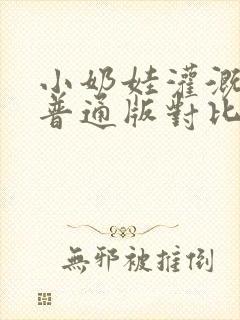 小奶娃灌溉
普通版對比
無邪被推倒